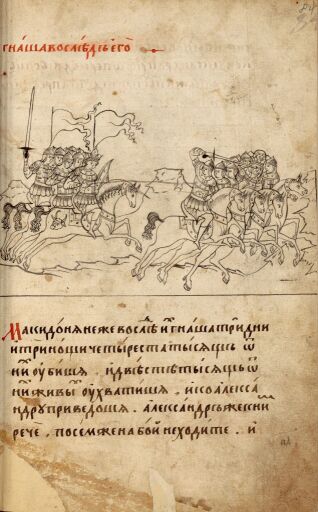 гнаша вослѣдъ его
Македоняне же вослѣ и҆ гнаша три дни
и три нощи четыреста тысящь ѿ
ни оубиша . и двѣстѣ тысящь ѿ
ни живы оухватиша , и ко алекса
ндру приведоша . александръ же к ни
рече . посем же на бой не ходите . и